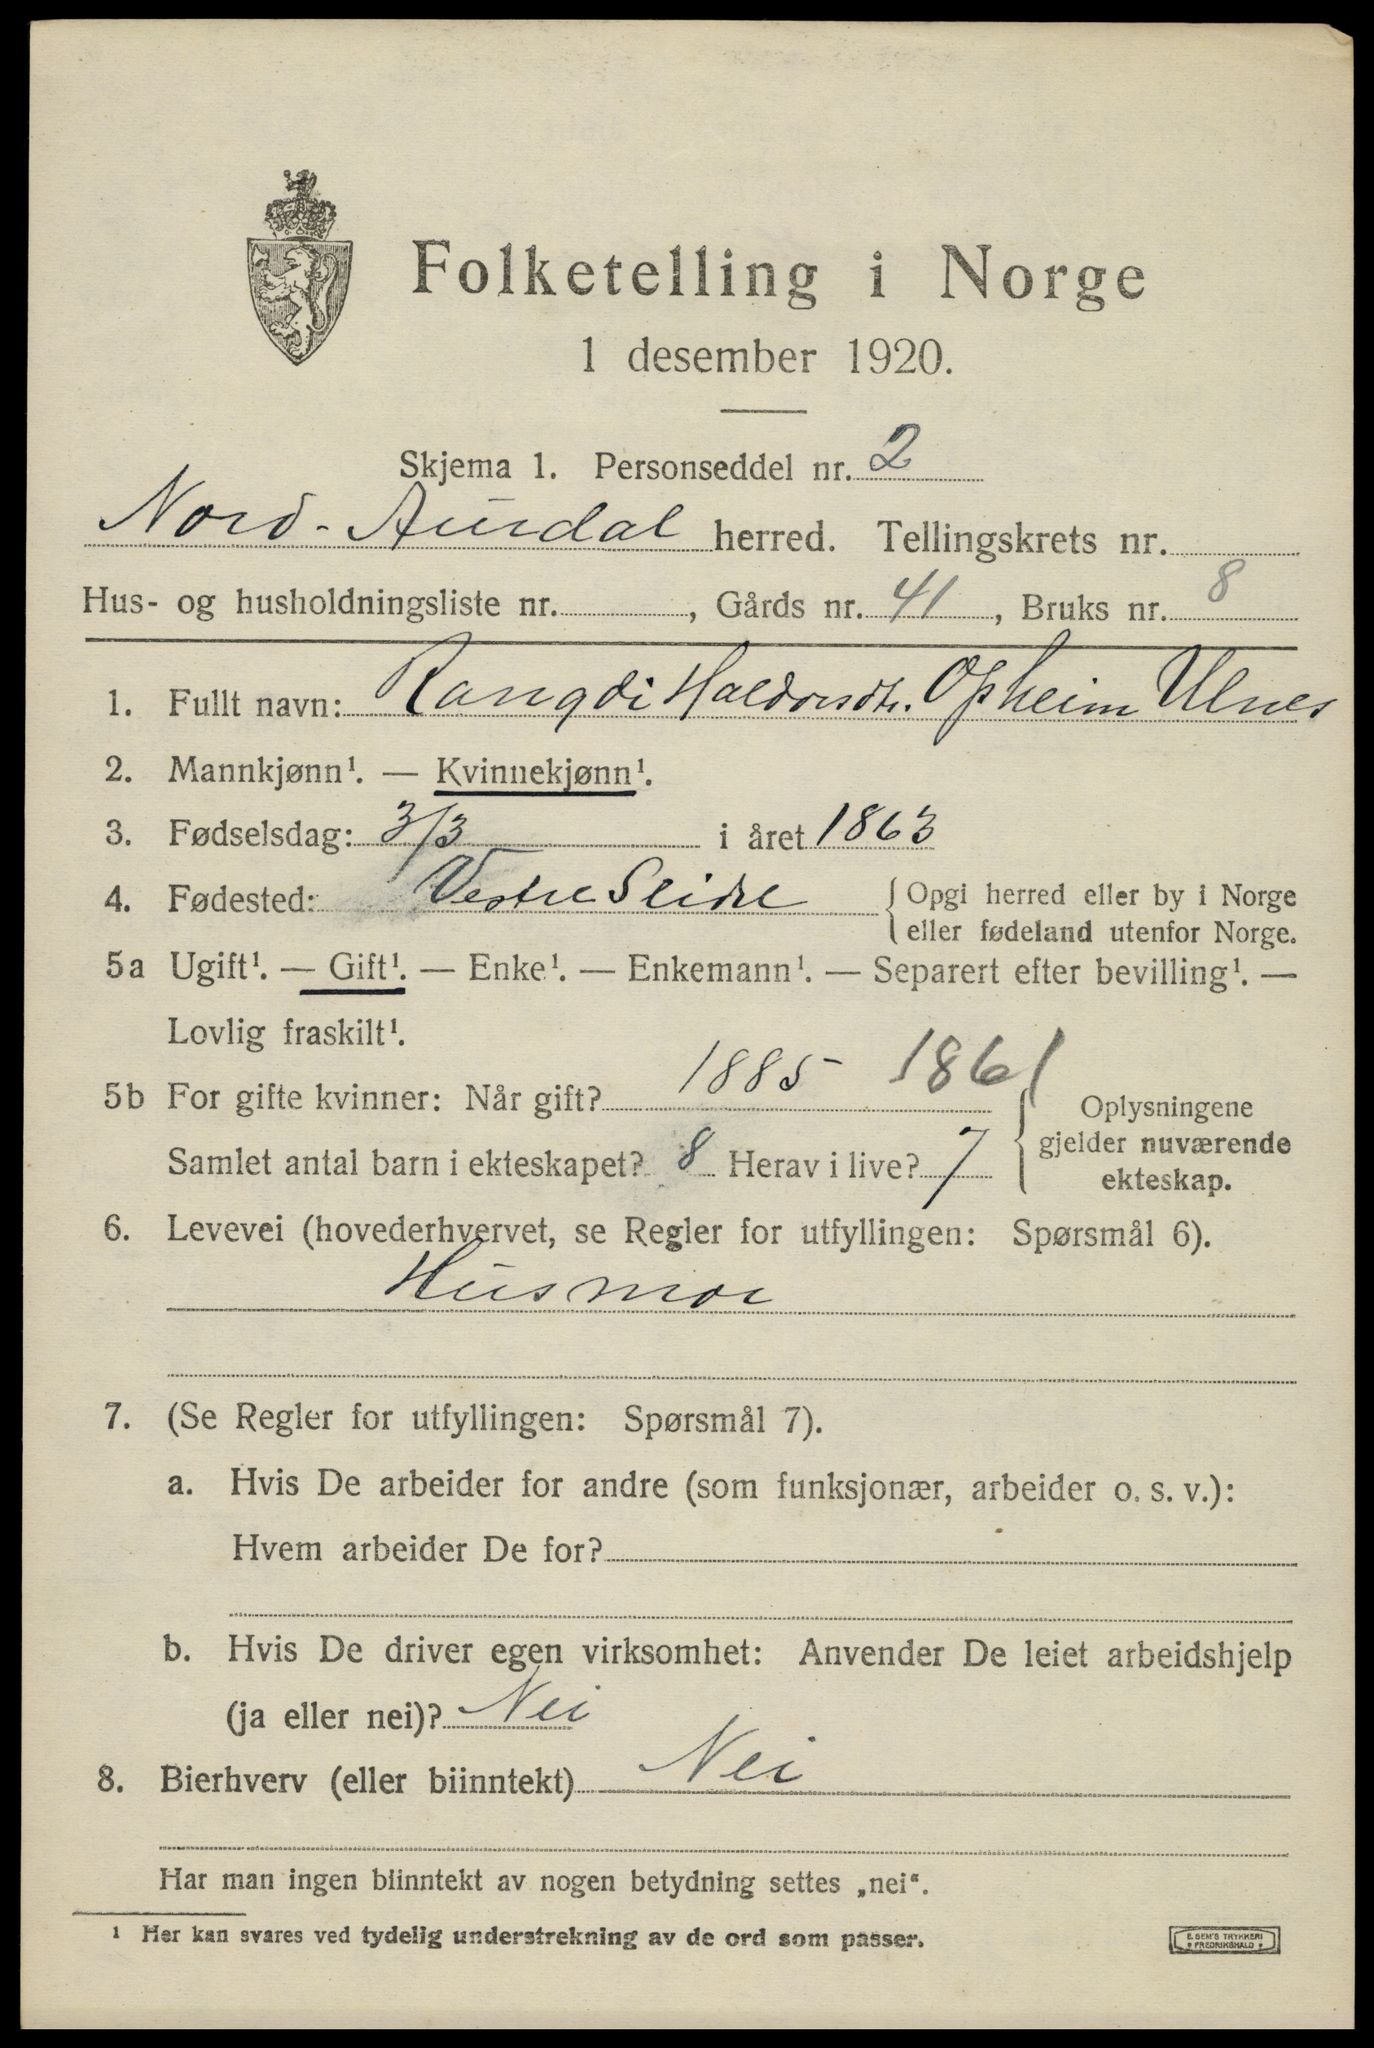 Folketelling i Norge
1 desember 1920.
Skjema 1. Personseddel nr. 2
Nord-Aurdal herred. Tellingskrets nr.
Hus- og husholdningsliste nr. , Gårds nr. 41 , Bruks nr. 8
1. Fullt navn: Rangdi Haldorsdtr. Opheim Ulnes
2. Mannkjønn¹. — Kvinnekjønn¹.
3. Fødselsdag: 3/3 i året 1863
4. Fødested: Vestre Slidre { Opgi herred eller by i Norge
eller fødeland utenfor Norge.
5a Ugift¹. — Gift¹. — Enke¹. — Enkemann¹. — Separert efter bevilling¹. —
Lovlig fraskilt¹.
5b For gifte kvinner: Når gift? 1885 1861
Samlet antal barn i ekteskapet? 8 Herav i live? 7
Oplysningene
gjelder nuværende
ekteskap.
6. Levevei (hovederhvervet, se Regler for utfyllingen: Spørsmål 6).
Husmor
7. (Se Regler for utfyllingen: Spørsmål 7).
a. Hvis De arbeider for andre (som funksjonær, arbeider o. s. v.):
Hvem arbeider De for?
b. Hvis De driver egen virksomhet: Anvender De leiet arbeidshjelp
(ja eller nei)? Nei
8. Bierhverv (eller biinntekt) Nei
Har man ingen biinntekt av nogen betydning settes „nei“.
¹ Her kan svares ved tydelig understrekning av de ord som passer.
E. SEM'S TRYKKERI
* FREDRIKSHALD *